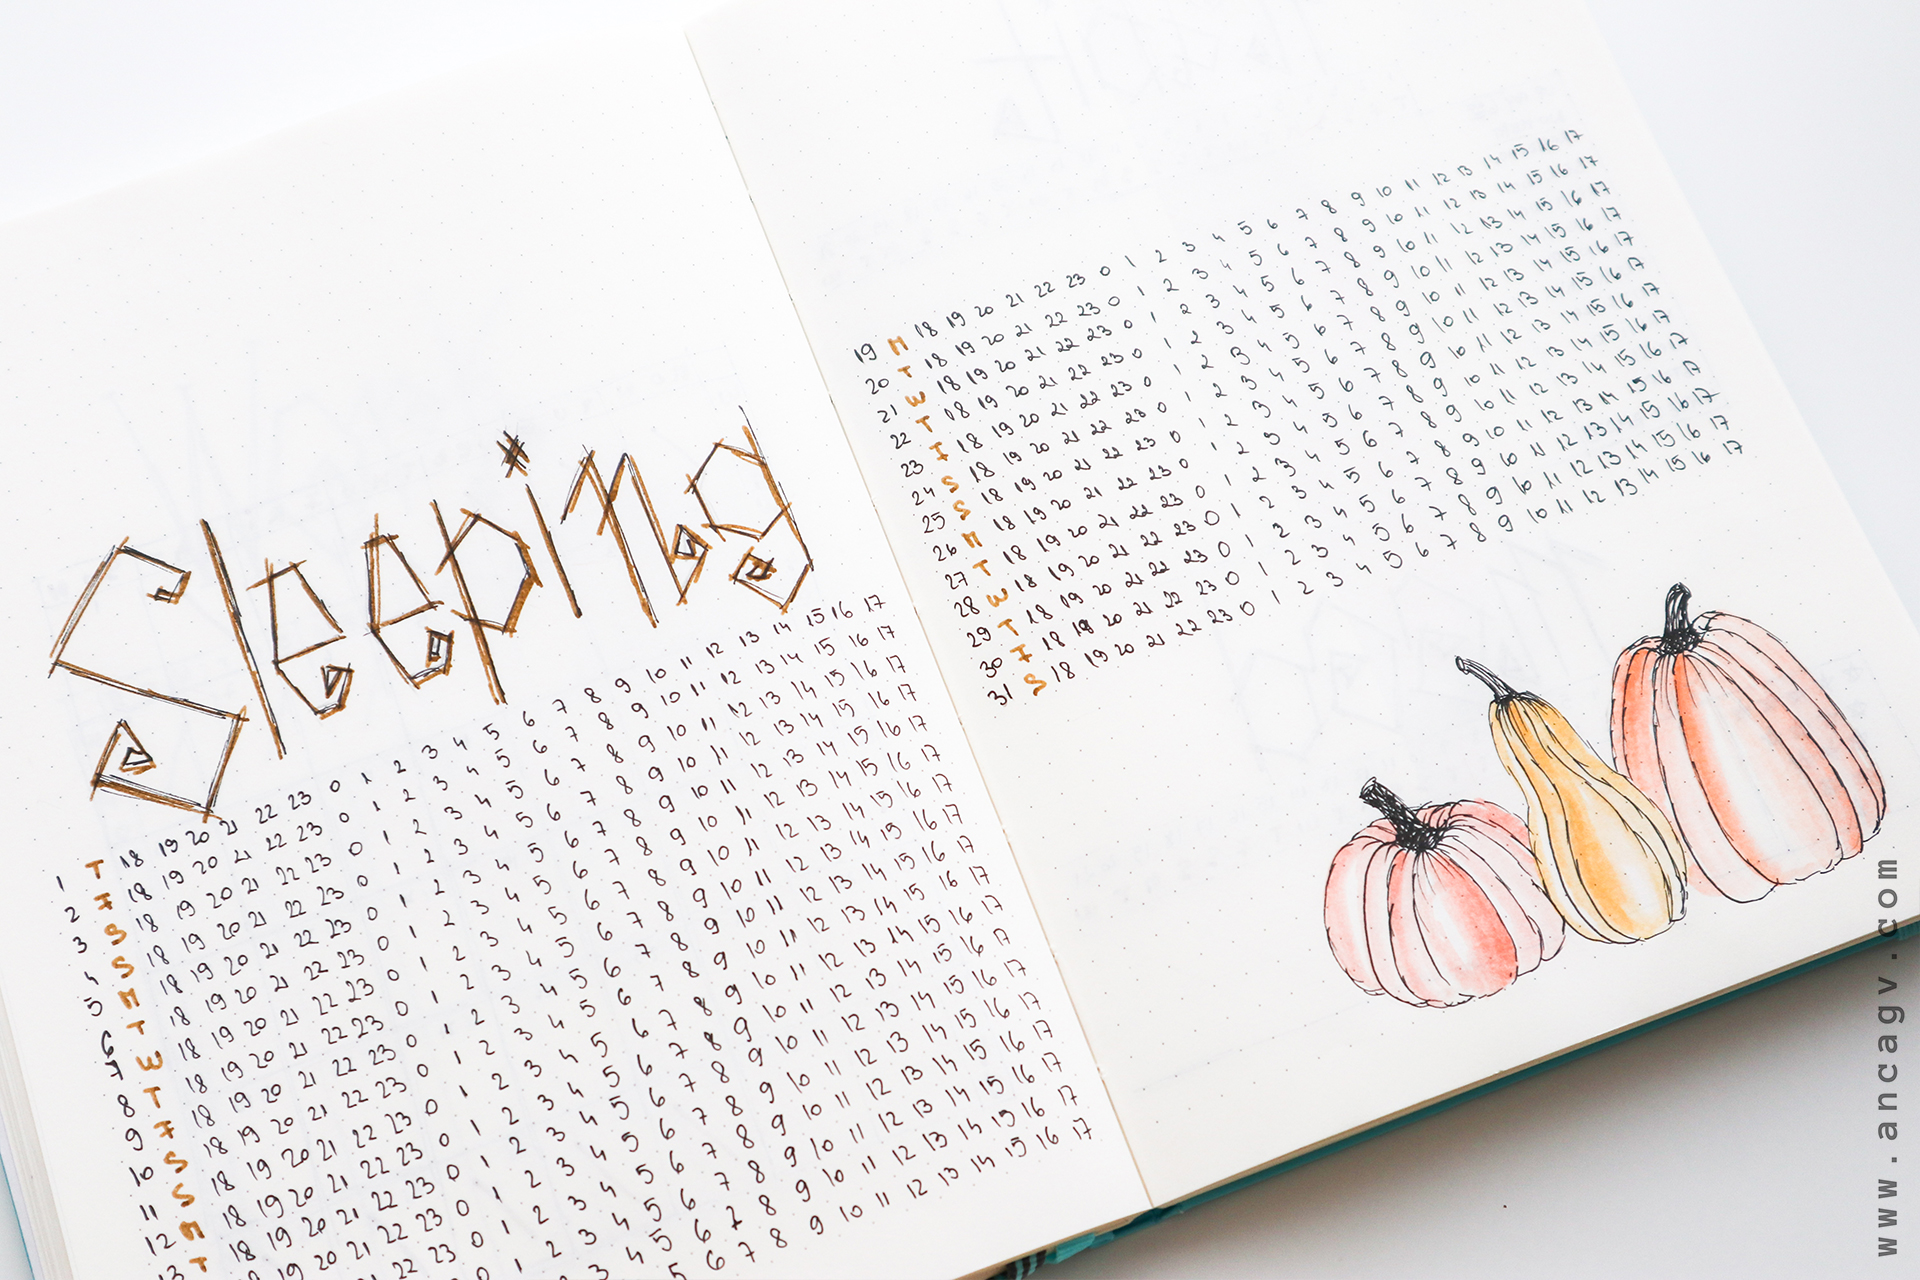 Sleeping
1 T 18 19 20 21 22 23 0 1 2 3 4 5 6 7 8 9 10 11 12 13 14 15 16 17
2 F 18 19 20 21 22 23 0 1 2 3 4 5 6 7 8 9 10 11 12 13 14 15 16 17
3 S 18 19 20 21 22 23 0 1 2 3 4 5 6 7 8 9 10 11 12 13 14 15 16 17
4 S 18 19 20 21 22 23 0 1 2 3 4 5 6 7 8 9 10 11 12 13 14 15 16 17
5 M 18 19 20 21 22 23 0 1 2 3 4 5 6 7 8 9 10 11 12 13 14 15 16 17
6 T 18 19 20 21 22 23 0 1 2 3 4 5 6 7 8 9 10 11 12 13 14 15 16 17
7 W 18 19 20 21 22 23 0 1 2 3 4 5 6 7 8 9 10 11 12 13 14 15 16 17
8 T 18 19 20 21 22 23 0 1 2 3 4 5 6 7 8 9 10 11 12 13 14 15 16 17
9 F 18 19 20 21 22 23 0 1 2 3 4 5 6 7 8 9 10 11 12 13 14 15 16 17
10 S 18 19 20 21 22 23 0 1 2 3 4 5 6 7 8 9 10 11 12 13 14 15 16 17
11 S 18 19 20 21 22 23 0 1 2 3 4 5 6 7 8 9 10 11 12 13 14 15 16 17
12 M 18 19 20 21 22 23 0 1 2 3 4 5 6 7 8 9 10 11 12 13 14 15 16 17
13 T 18 19 20 21 22 23 0 1 2 3 4 5 6 7 8 9 10 11 12 13 14 15 16 17
18 19 20 21 22 23 0 1 2 3 4 5 6 7 8 9 10 11 12 13 14 15 16 17
20 22 23 0 1 2 3 4 5 6 7 8 9 10 11 12 13 14 15 16 17
0 1 2 3 4 5 6 7 8 9 10 11 12 13 14 15 16 17
3 4 5 6 7 8 9 10 11 12 13 14 15 16 17
5 6 7 8 9 10 11 12 13 14 15 16 17
19 M 18 19 20 21 22 23 0 1 2 3 4 5 6 7 8 9 10 11 12 13 14 15 16 17
20 T 18 19 20 21 22 23 0 1 2 3 4 5 6 7 8 9 10 11 12 13 14 15 16 17
21 W 18 19 20 21 22 23 0 1 2 3 4 5 6 7 8 9 10 11 12 13 14 15 16 17
22 T 18 19 20 21 22 23 0 1 2 3 4 5 6 7 8 9 10 11 12 13 14 15 16 17
23 F 18 19 20 21 22 23 0 1 2 3 4 5 6 7 8 9 10 11 12 13 14 15 16 17
24 S 18 19 20 21 22 23 0 1 2 3 4 5 6 7 8 9 10 11 12 13 14 15 16 17
25 S 18 19 20 21 22 23 0 1 2 3 4 5 6 7 8 9 10 11 12 13 14 15 16 17
26 M 18 19 20 21 22 23 0 1 2 3 4 5 6 7 8 9 10 11 12 13 14 15 16 17
27 T 18 19 20 21 22 23 0 1 2 3 4 5 6 7 8 9 10 11 12 13 14 15 16 17
28 W 18 19 20 21 22 23 0 1 2 3 4 5 6 7 8 9 10 11 12 13 14 15 16 17
29 T 18 19 20 21 22 23 0 1 2 3 4 5 6 7 8 9 10 11 12 13 14 15 16 17
30 F 18 19 20 21 22 23 0 1 2 3 4 5 6 7 8 9 10 11 12 13 14 15 16 17
31 S 18 19 20 21 22 23 0 1 2 3 4 5 6 7 8 9 10 11 12 13 14 15 16 17
www.ancagv.com